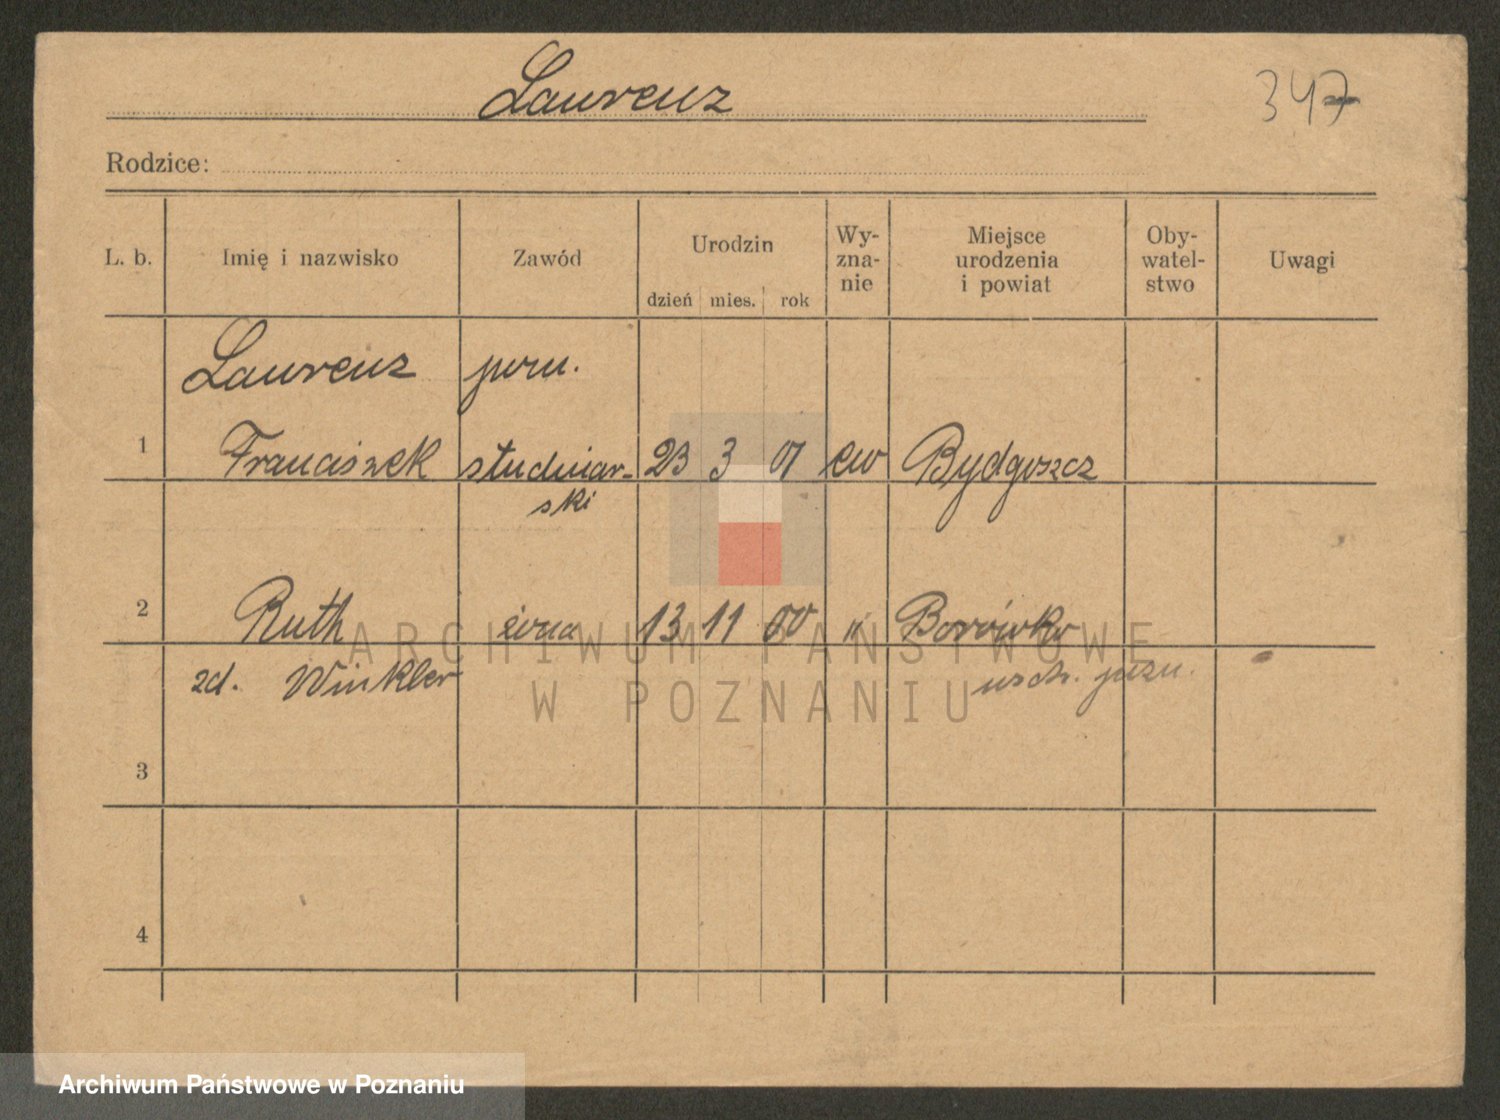 Laurenz
347
Rodzice:
L. b. Imię i nazwisko Zawód Urodzin dzień mies. rok Wy-zna-nie Miejsce urodzenia i powiat Oby-watel-stwo Uwagi
Laurenz pom.
1 Franciszek studniar- 23 3 01 ew Bydgoszcz
ski
2 Ruth żona 13 11 00 " Borówko
zd. Winkler
3
4
ARCHIWUM PAŃSTWOWE
W POZNANIU
Archiwum Państwowe w Poznaniu